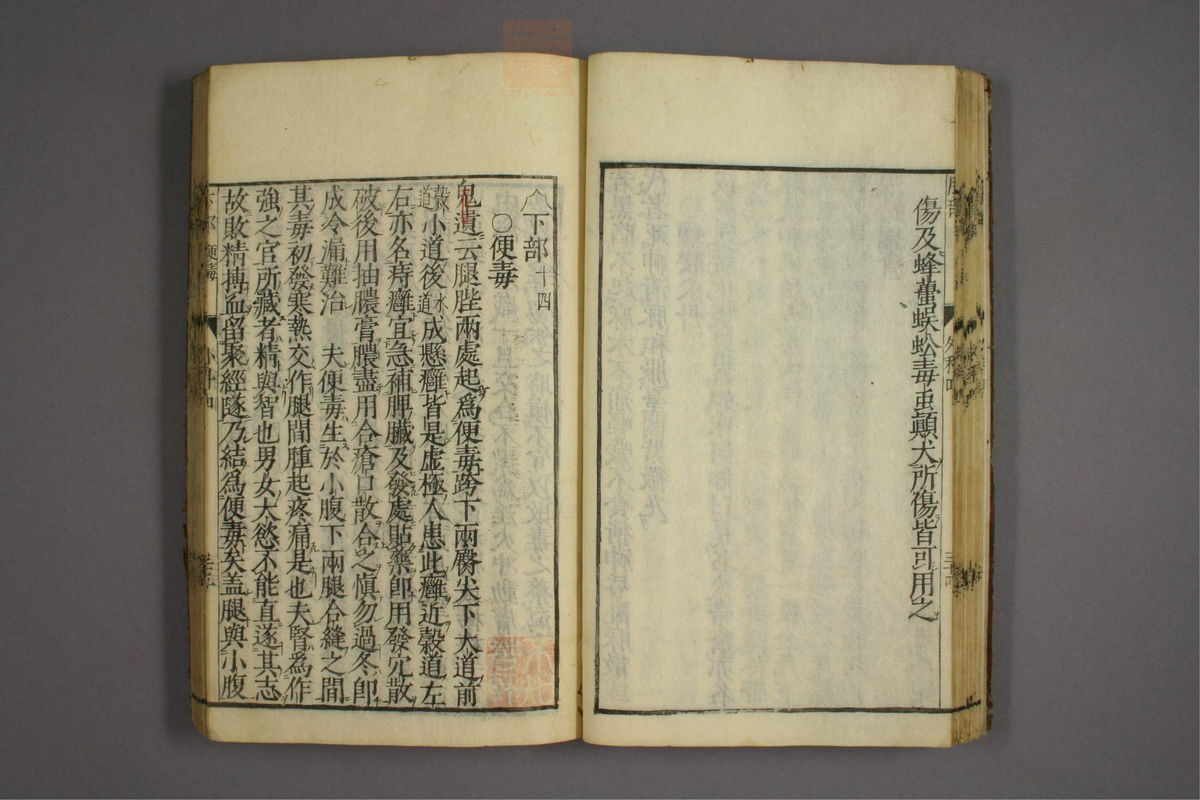 傷及蜂蠆蜈蚣毒䖝顛犬所傷皆可用之
下部十四
〇便毒
鬼遺云腿䏶兩處起爲便毒跨下兩臀尖下大道前
穀道小道後水道成懸癰皆是虛極人患此癰近穀道左
右亦名痔癰宜急補脾臟及發處貼藥卽用發穴散
破後用抽膿膏膿盡用合瘡口散合之愼勿過冬卽
成冷漏難治 夫便毒生於小腹下兩腿合縫之間
其毒初發寒熱交作腿間腫起疼痛是也夫腎爲作
強之官所藏者精與智也男女大慾不能直遂其志
故敗精搏血留聚經隧乃結爲便毒矣盖腿與小腹
下部 便毒
外科四